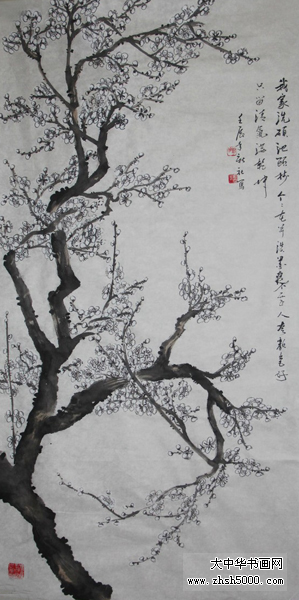 我家洗砚池头树个个花开淡墨痕不要人夸颜色好
只留清气满乾坤
壬辰年秋
大中华书画网
www.zhsh5000.com